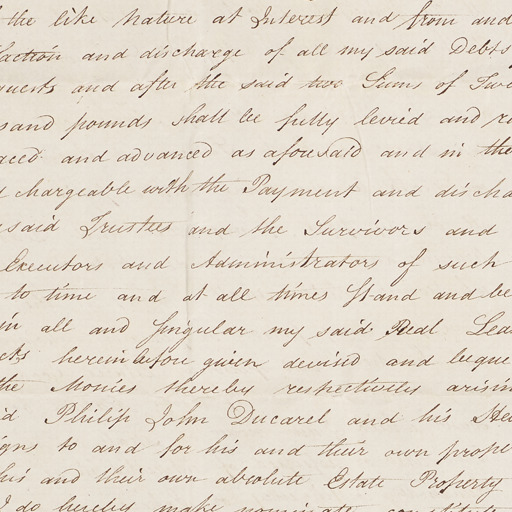 the like nature at Interest and from and
faction and discharge of all my said Debts
quests and after the said two Sums of Two
sand pounds shall be fully levied and r
aced and advanced as aforesaid and in the
d chargeable with the Payment and discha
said Trustees and the Survivors and
Executors and Administrators of such
to time and at all times stand and be
in all and singular my said Real Lea
cts hereinbefore given devised and beque
the Monies thereby respectively arisin
id Philip John Ducarel and his Hei
igns to and for his and their own proper
his and their own absolute Estate Property
I do hereby make nominate constitute